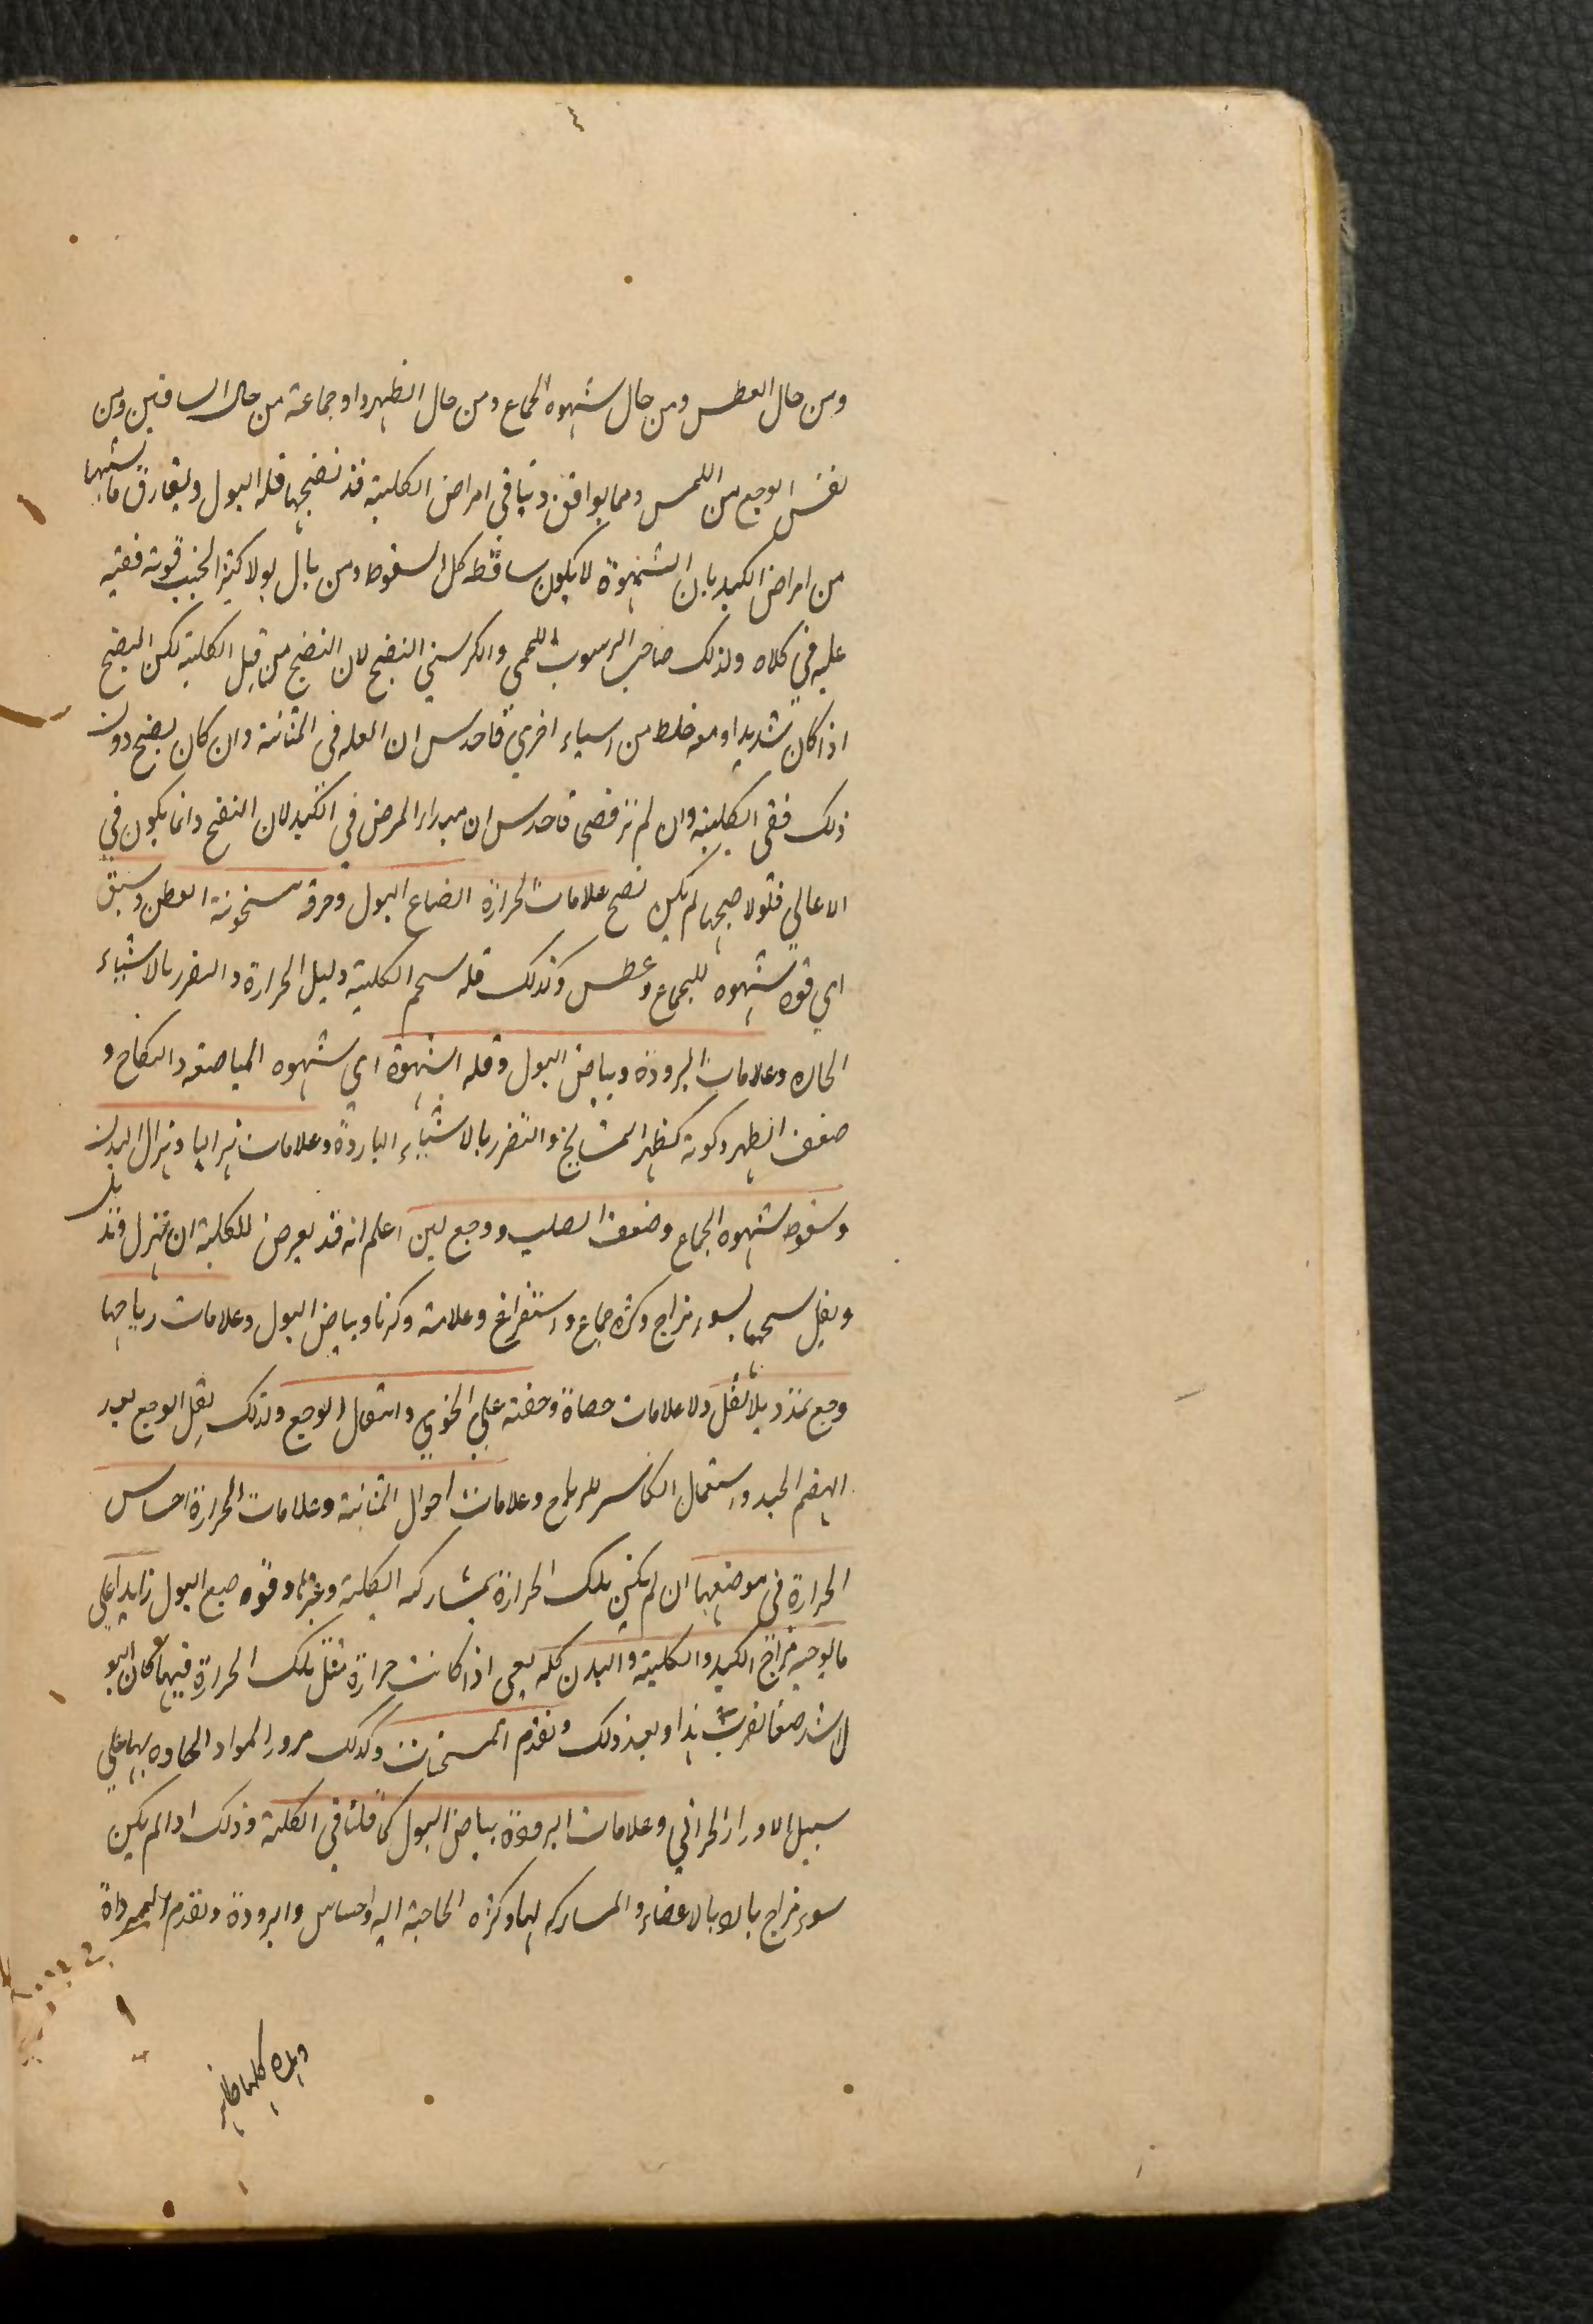 ٤
ومن حال العطس ومن حال شهوه الجماع ومن حال الظهر واوجاعه من حال الساقين ومن
نفس الوجع من اللمس ومما يوافق وينافى امراض الكلية قد تضجها قله البول ويفارق ما يشبهها
من امراض الكبد بان الشهوة لا يكون ساقطه كل السقوط ومن بال بولا كثير الحبب فوقه ففيه
عليه فى كلاه وكذلك صاحب الرسوب اللحمى والكرسنى النضج لان النضج من قبل الكلية لكن النضج
اذا كان شديدا ومعه خلط من اسياء اخرى فاحدس ان العله فى المثانة وان كان نضج دون
ذلك ففى الكلية وان لم فاحدس ان مبدا المرض فى الكبد لان النضج وانما يكون فى
الاعالى فلولا صحها لم يكن نضح علامات الحرارة انصباغ البول وحرقه سخونة القطن وسبق
اى قوه شهوه للجماع وعطس وكذلك قله سحم الكلية دليل الحرارة والتضرر بالاشياء
الحاره وعلامات البرودة وبياض البول وقله الشهوة اى شهوه المباضعه والنكاح و
ضعف الظهر وكونه كظهر المشايخ والتضرر بالاشياء الباردة وعلامات هزالها وهزال البدن
وسقوط شهوه الجماع وضعف الصلب ووجع لين اعلم انه قد يعرض للكلية ان تهزل وتذبل
ويقل سحمها لسوء مزاج وكثره جماع واستفراغ وعلامته وكرنا وبياض البول وعلامات رياحها
وجع تمدد بلا ثقل ولا علامات حصاة وخفته على الخوى وانتقال الوجع وكذلك يقل الوجع بعد
الهضم الجيد واستعمال الكاسر للرياح وعلامات احوال المثانية وعلامات الحرارة احساس
الحرارة فى موضعها ان لم يكن تلك الحرارة بمشاركه الكلية وغيرها وقوه صبع البول زايدا على
ما يوجبه مزاج الكبد والكلية والبدن كله يعنى اذا كانت حرارة مثل تلك الحرارة فيها كان البو
ل اشد صفا هذا وبعد ذلك وتقدم المسخنات وكذلك مرور المواد الحاوه بها على
سبيل الادرار الحرانى وعلامات البرودة بياض البول كما قلنا فى الكلية وذلك اذا لم يكن
سوء مزاج بالاعضاء والمساركه لها وكثره الحاجة اليه واحساس والبرودة وتقدم المبردات
وهذه كلها ظاهر